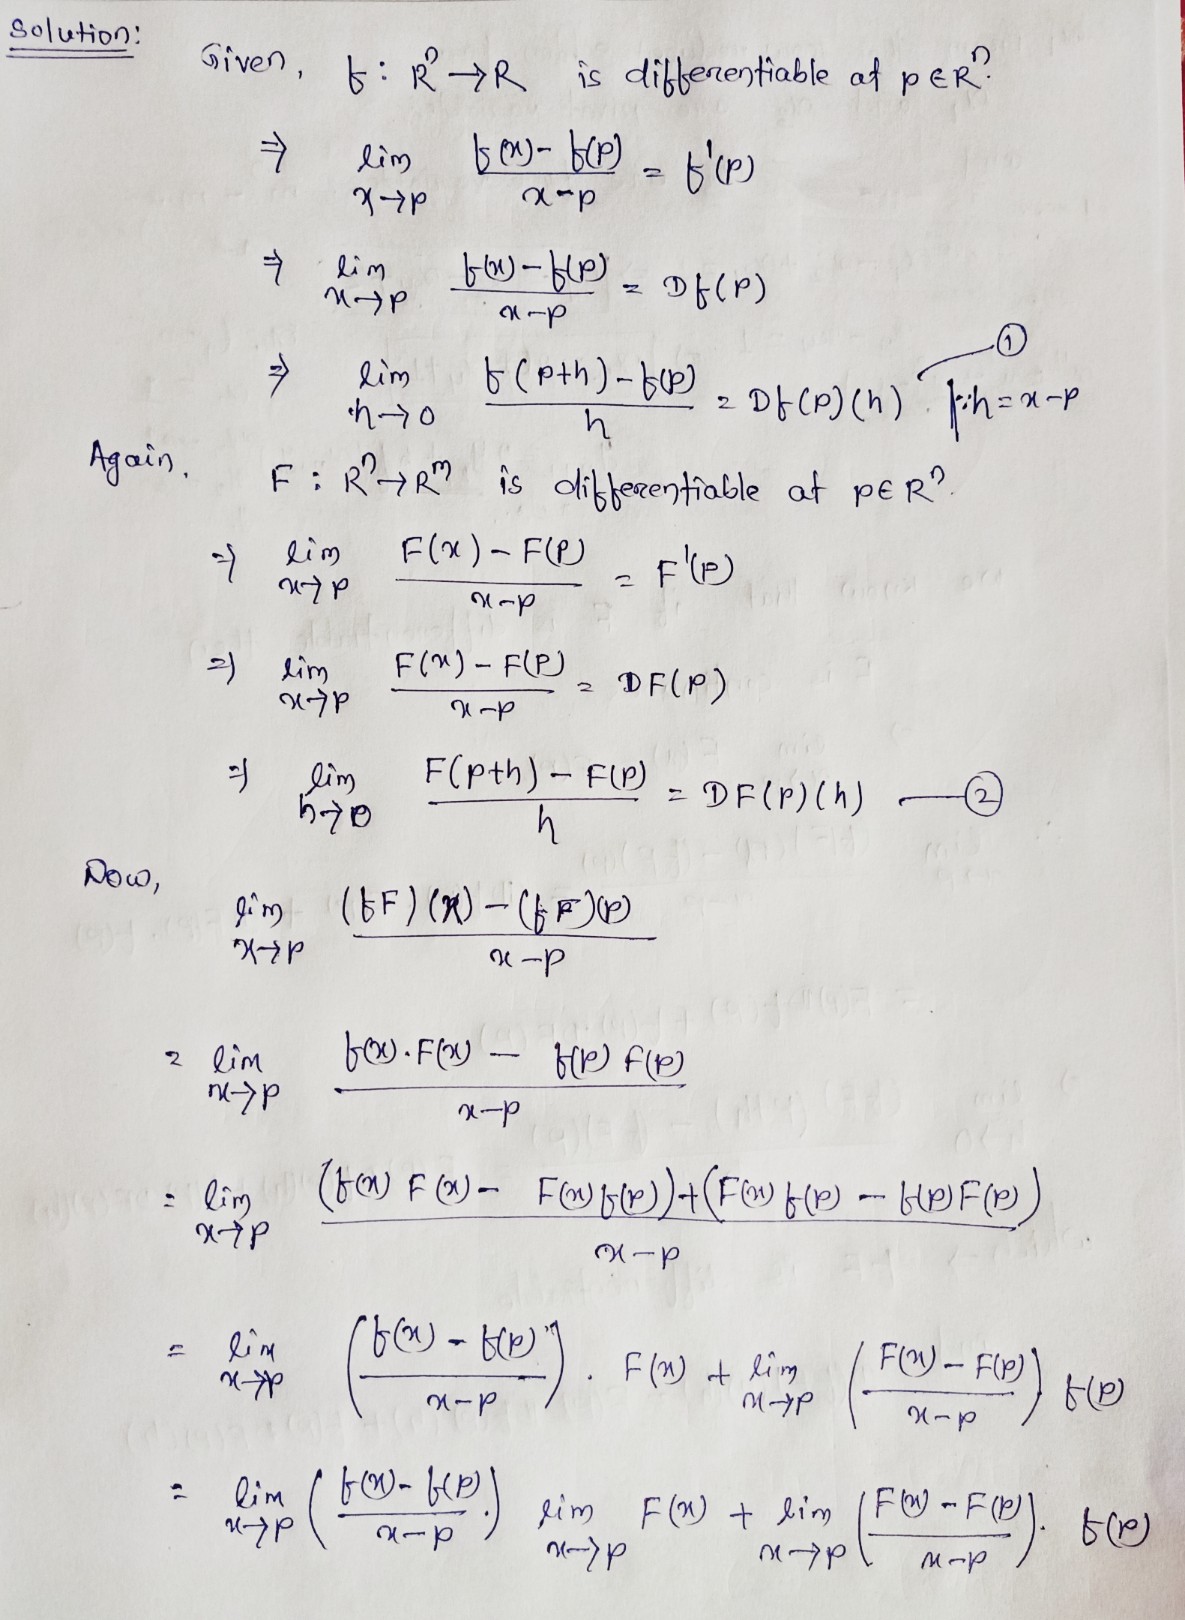 Solution:
Given, f : Rⁿ → R is differentiable at p ∈ Rⁿ.
⇒ lim x→p (f(x) - f(p))/(x-p) = f'(p)
⇒ lim x→p (f(x) - f(p))/(x-p) = Df(p)
⇒ lim h→0 (f(p+h) - f(p))/h = Df(p)(h) ① [∵ h = x-p
Again, F : Rⁿ → Rᵐ is differentiable at p ∈ Rⁿ.
⇒ lim x→p (F(x) - F(p))/(x-p) = F'(p)
⇒ lim x→p (F(x) - F(p))/(x-p) = DF(p)
⇒ lim h→0 (F(p+h) - F(p))/h = DF(p)(h) — ②
Now, lim x→p ((fF)(x) - (fF)(p))/(x-p)
= lim x→p (f(x)·F(x) - f(p) F(p))/(x-p)
= lim x→p ((f(x) F(x) - F(x)f(p)) + (F(x) f(p) - f(p)F(p)))/(x-p)
= lim x→p ((f(x) - f(p))/(x-p)) · F(x) + lim x→p ((F(x) - F(p))/(x-p)) f(p)
= lim x→p ((f(x) - f(p))/(x-p)·) lim x→p F(x) + lim x→p ((F(x) - F(p))/(x-p)) · f(p)